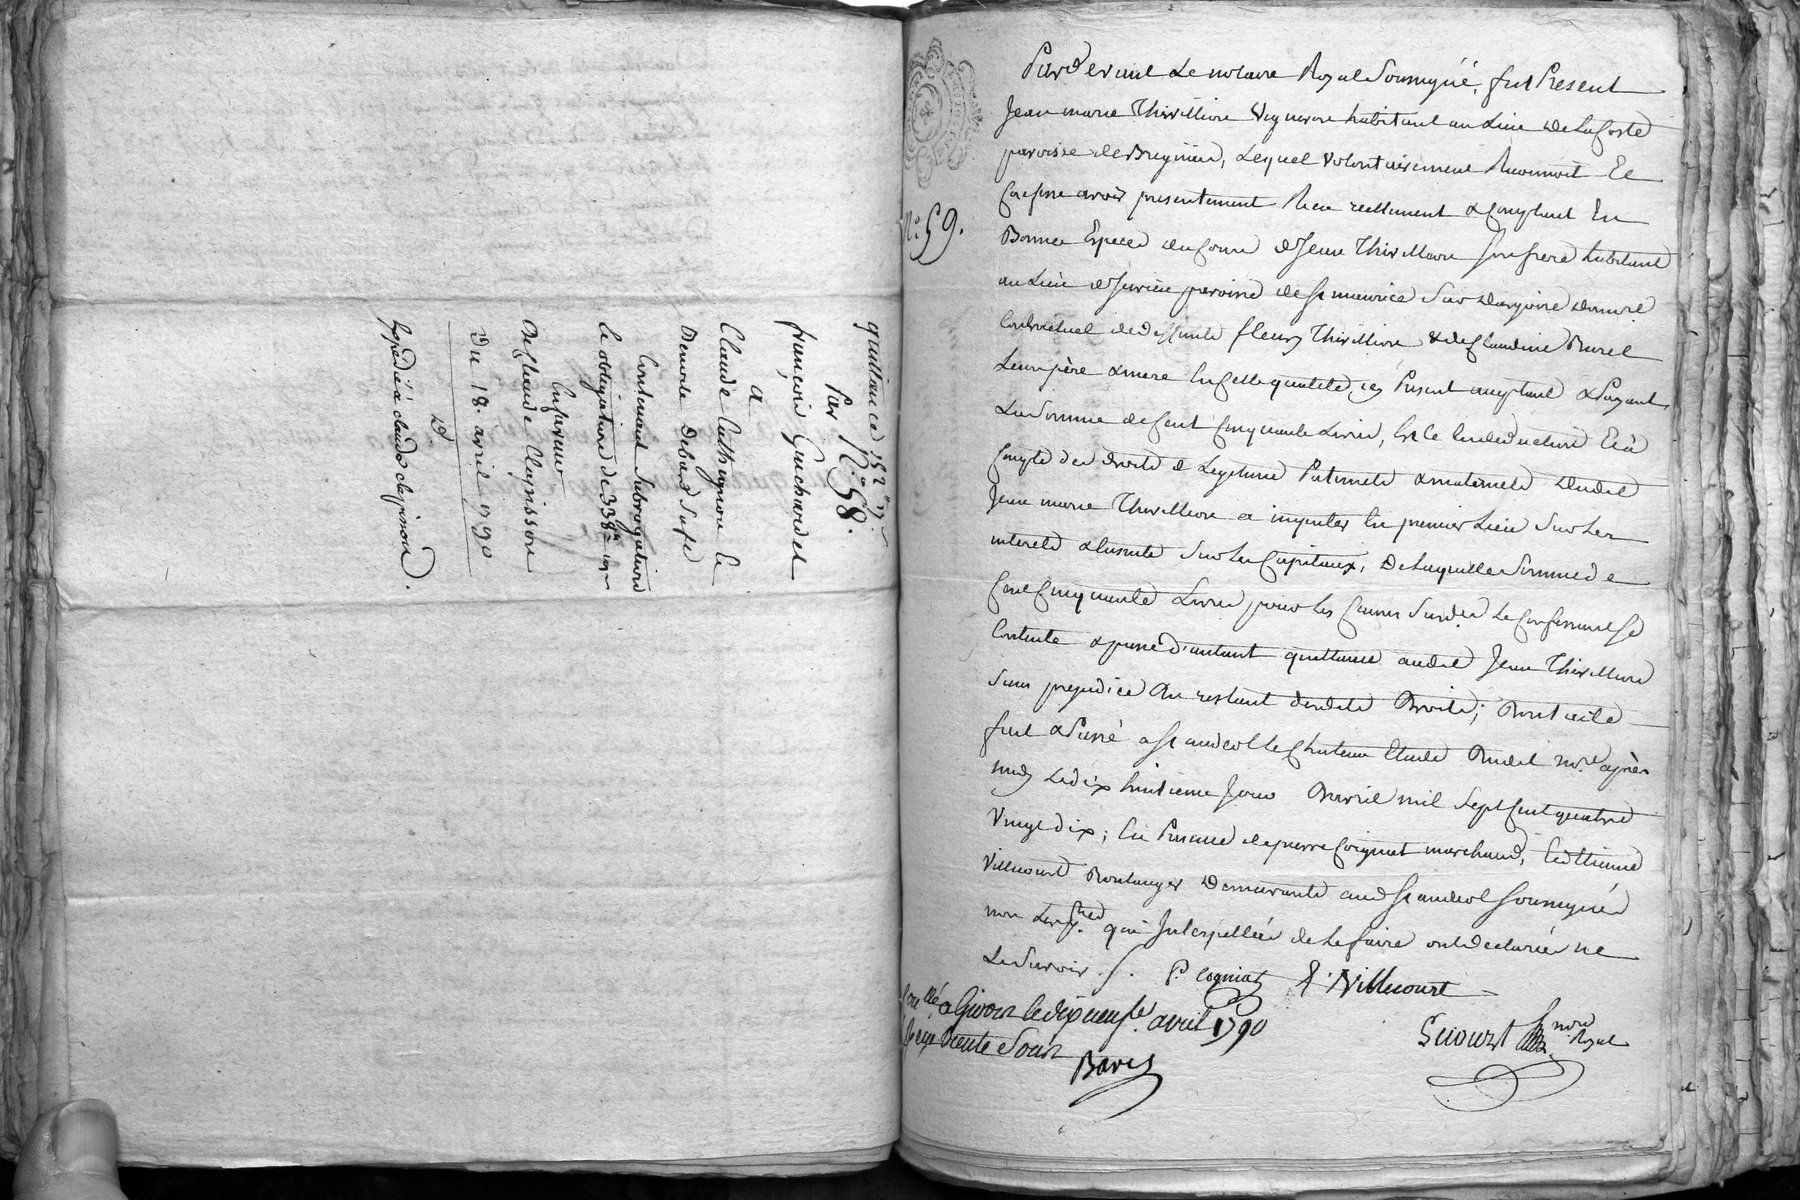 quittance 152
N.° 58.
Par
françois Guichardet
a
Claude Cathignon le
Demorte Debas Dufe
Contenant Subrogation
le obligation de 338
En faveur
De Claude Clayisson
Du 18. avril 1790
D
Expedié à claude clayisson.
N.° 59.
Pardevant Le notaire Royal Soussigné, fut Present
Jean marie Thivilliion Vigneron habitant au Lieu de La Coste
paroisse de Brignier, Lequel Volontairement Reconnoit Et
Confesse avoir presentement Recu reellement & Comptant En
Bonnes Especes du Cours de Jean Thivillion Son frere habitant
au Lieu de paroisse de St maurice Sur Dargoire Donnat.
Contractuel de deffunte fleury Thivillion & de Claudine Burel
Leurs père & mere En Cette qualité icy Present acceptant & Payant
La Somme de Cent Cinquante Livres, Et Ce En deduction Et à
Compte des droits de Legitime Paternels & maternels Dudit
Jean marie Thivillion a imputer En premier Lieu Sur Les
interets & Ensuite Sur Les Capitaux, De Laquelle Somme de
Cent Cinquante Livres pour Les Causes Susdites Le Confessant Se
Contente & passe d'autant quittance audit Jean Thivillion
Sans prejudice Du restant desdits Droits; Dont acte
fait & Passé a St andeol Le Chateau Etude Dudit no.re après
midy Le dix huitieme Jour Davril mil Sept Cent quatre
Vingt dix; En Presence de pierre Coignat marchand, Et Etienne
Villecourt Boulanger Demeurants aud St andeol Soussignés
non Les p.ties qui Interpellées de Le faire ont declarées ne
Le Savoir. /.
P. Cogniat E. Villecourt
Con.llé a Givors le dix neuf avril 1790
Reçu trente Sous
Baroy
Guourst no.re Royal